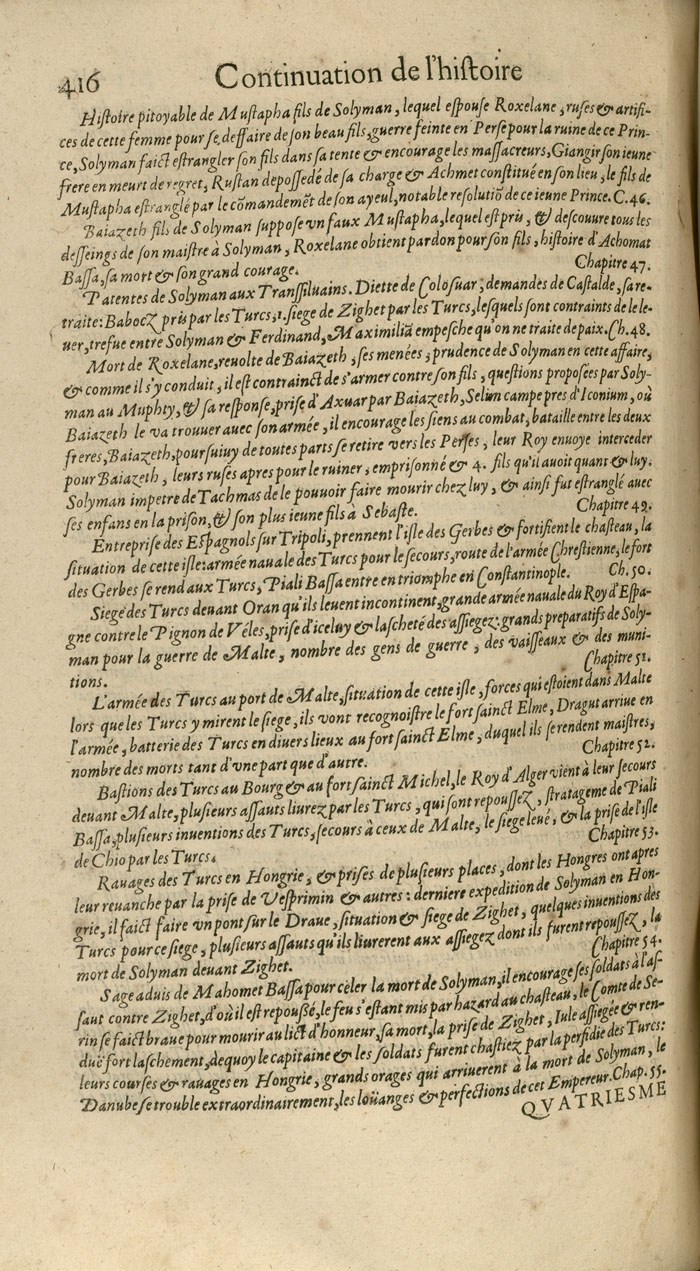 416 Continuation de l'histoire
Histoire pitoyable de Mustapha fils de Solyman, lequel espouse Roxelane, ruses & artifi-
ces de cette femme pour se deffaire de son beau fils, guerre feinte en Perse pour la ruine de ce Prin-
ce, Solyman faict estrangler son fils dans sa tente & encourage les massacreurs, Giangir son ieune
frere en meurt de regret, Rustan depossedé de sa charge & Achmet constitué en son lieu, le fils de
Mustapha estranglé par le cōmandemēt de son ayeul, notable resolutiō de ce ieune Prince. C. 46.
Baiazeth fils de Solyman suppose vn faux Mustapha, lequel est pris, & descouure tous les
desseings de son maistre à Solyman, Roxelane obtient pardon pour son fils, histoire d'Achomat
Bassa, sa mort & son grand courage. Chapitre 47.
Patentes de Solyman aux Transsiluains. Diette de Colosuar; demandes de Castalde, sa re-
traite: Babocz pris par les Turcs, siege de Zighet par les Turcs, lesquels sont contraints de le le-
uer, trefue entre Solyman & Ferdinand, Maximiliā empesche qu'on ne traite de paix. Ch. 48.
Mort de Roxelane, reuolte de Baiazeth, ses menées, prudence de Solyman en cette affaire,
& comme il s'y conduit, il est contrainct de s'armer contre son fils, questions proposées par Soly-
man au Muphty, & sa response, prise d'Axuar par Baiazeth, Selim campe pres d'Iconium, où
Baiazeth le va trouuer auec son armée, il encourage les siens au combat, bataille entre les deux
freres, Baiazeth, poursuiuy de toutes parts se retire vers les Perses, leur Roy enuoye interceder
pour Baiazeth, leurs ruses apres pour le ruiner, emprisonné & 4. fils qu'il auoit quant & luy.
Solyman impetre de Tachmas de le pouuoir faire mourir chez luy, & ainsi fut estranglé auec
ses enfans en la prison, & son plus ieune fils à Sebaste. Chapitre 49.
Entreprise des Espagnols sur Tripoli, prennent l'isle des Gerbes & fortifient le chasteau, la
situation de cette isle: armée nauale des Turcs pour le secours, route de l'armée Chrestienne, le fort
des Gerbes se rend aux Turcs, Piali Bassa entre en triomphe en Constantinople. Ch. 50.
Siege des Turcs deuant Oran qu'ils leuent incontinent, grande armée nauale du Roy d'Espa-
gne contre le Pignon de Véles, prise d'iceluy & lascheté des assiegez: grands preparatifs de Soly-
man pour la guerre de Malte, nombre des gens de guerre, des vaisseaux & des muni-
tions. Chapitre 51.
L'armée des Turcs au port de Malte, situation de cette isle, forces qui estoient dans Malte
lors que les Turcs y mirent le siege, ils vont recognoistre le fort sainct Elme, Dragut arriue en
l'armée, batterie des Turcs en diuers lieux au fort sainct Elme, duquel ils se rendent maistres,
nombre des morts tant d'vne part que d'autre. Chapitre 52.
Bastions des Turcs au Bourg & au fort sainct Michel, le Roy d'Alger vient à leur secours
deuant Malte, plusieurs assauts liurez par les Turcs, qui sont repoussez, stratageme de Piali
Bassa, plusieurs inuentions des Turcs, secours à ceux de Malte, le siege leué, & la prise de l'isle
de Chio par les Turcs. Chapitre 53.
Rauages des Turcs en Hongrie, & prises de plusieurs places, dont les Hongres ont apres
leur reuanche par la prise de Vesprimin & autres: derniere expedition de Solyman en Hon-
grie, il faict faire vn pont sur le Draue, situation & siege de Zighet, quelques inuentions des
Turcs pour ce siege, plusieurs assauts qu'ils liurerent aux assiegez dont ils furent repoussez, la
mort de Solyman deuant Zighet. Chapitre 54.
Sage aduis de Mahomet Bassa pour celer la mort de Solyman, il encourage ses soldats à l'as-
saut contre Zighet, d'où il est repoussé, le feu s'estant mis par hazard au chasteau, le Comte de Se-
rin se faict braue pour mourir au lict d'honneur, sa mort, la prise de Zighet, Iule assiegée & ren-
duë fort laschement, dequoy le capitaine & les soldats furent chastiez par la perfidie des Turcs:
leurs courses & rauages en Hongrie, grands orages qui arriuerent à la mort de Solyman, le
Danube se trouble extraordinairement, les loüanges & perfections de cet Empereur. Chap. 55.
QVATRIESME